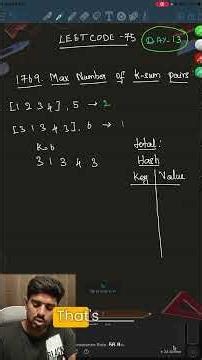 LEETCODE-75
DAY-13
1769. Max Number of k-sum pairs
[1 2 3 4], 5 → 2
[3 1 3 4 3], 6 → 1
k=6
3 1 3 4 3
total:
Hash
Key Value
That's